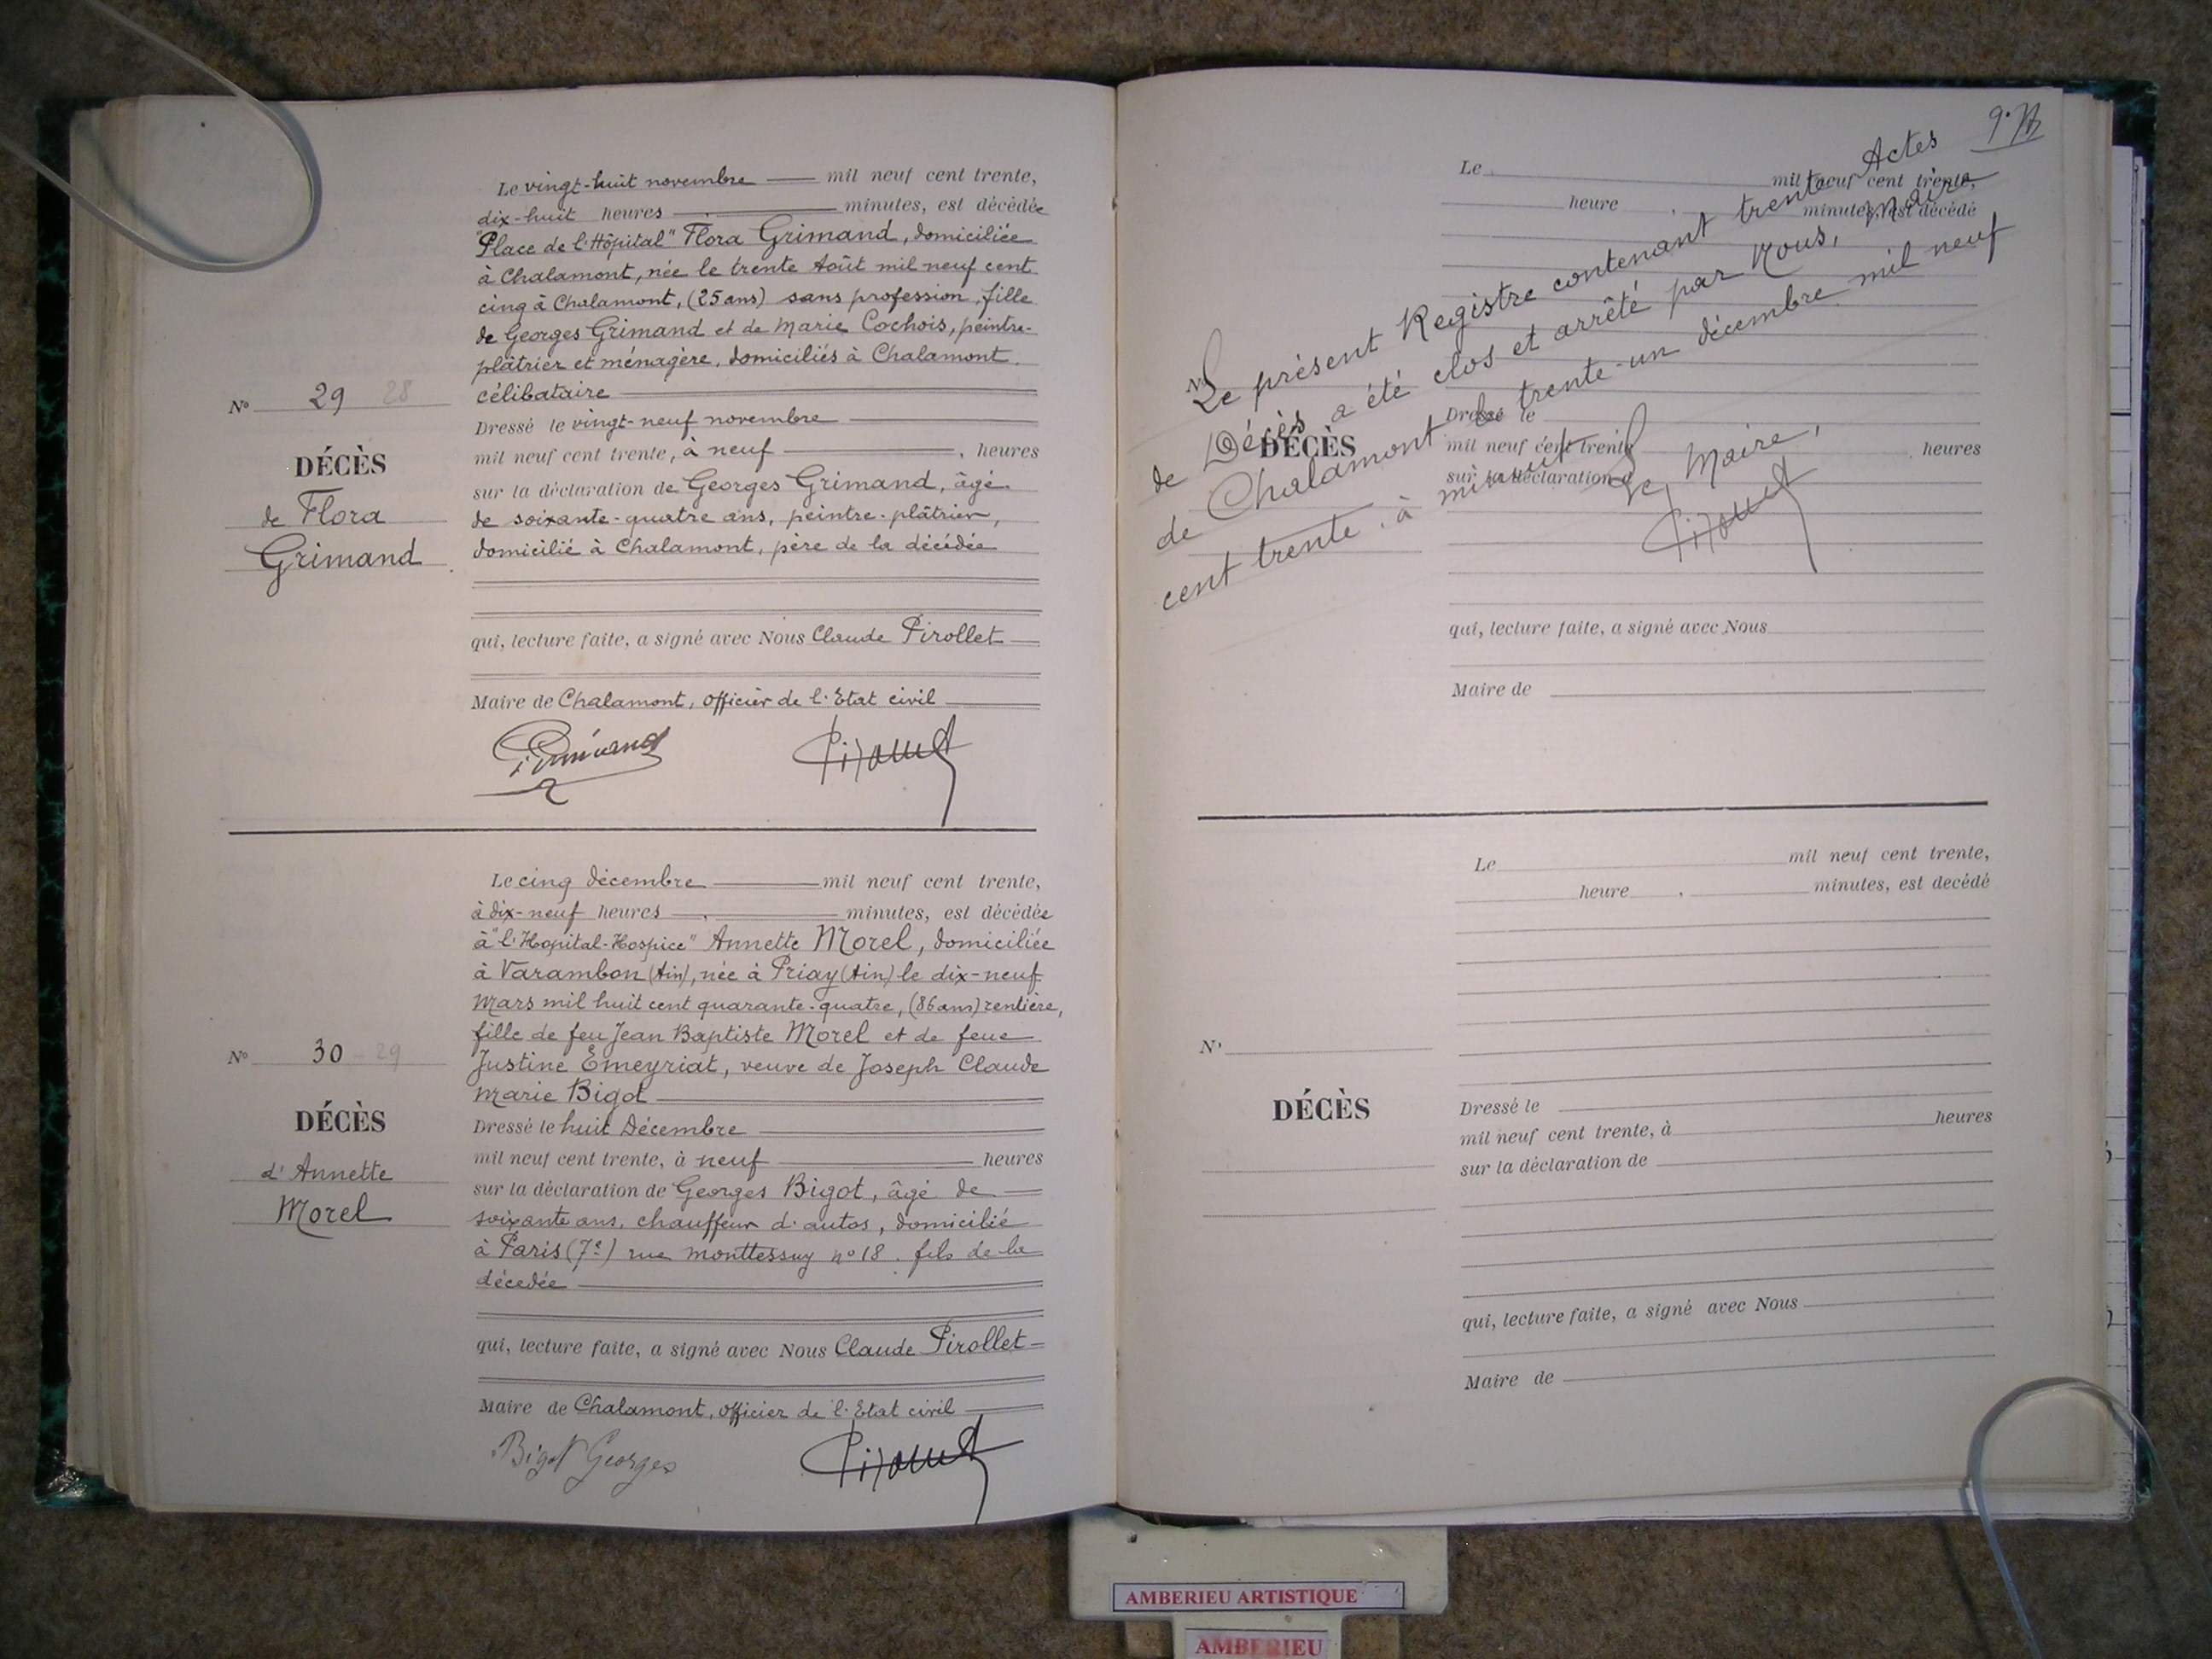 Le vingt-huit novembre mil neuf cent trente,
dix-huit heures . minutes, est décédée
"Place de l'Hôpital" Flora Grimand, domiciliée
à Chalamont, née le trente Août mil neuf cent
cinq à Chalamont, (25 ans) sans profession, fille
de Georges Grimand et de Marie Cochois, peintre-
plâtrier et ménagère, domiciliés à Chalamont.
célibataire
Dressé le vingt-neuf novembre
mil neuf cent trente, à neuf , heures
sur la déclaration de Georges Grimand, âgé
de soixante-quatre ans, peintre-plâtrier,
domicilié à Chalamont, père de la décédée
qui, lecture faite, a signé avec Nous Claude Pirollet
Maire de Chalamont, officier de l'Etat civil
Nº 29 28
DÉCÈS
de Flora
Grimand
Le cinq décembre mil neuf cent trente,
à dix-neuf heures . minutes, est décédée
à "l'Hopital-Hospice" Annette Morel, domiciliée
à Varambon (Ain), née à Priay (Ain) le dix-neuf
Mars mil huit cent quarante-quatre, (86 ans) rentière,
fille de feu Jean Baptiste Morel et de feue
Justine Emeyriat, veuve de Joseph Claude
Marie Bigot
Dressé le huit Décembre
mil neuf cent trente, à neuf heures
sur la déclaration de Georges Bigot, âgé de
soixante ans, chauffeur d'autos, domicilié
à Paris (7e) rue Monttessuy nº 18. fils de la
décédée
qui, lecture faite, a signé avec Nous Claude Pirollet
Maire de Chalamont, officier de l'Etat civil
Bigot Georges
Nº 30 - 29
DÉCÈS
d'Annette
Morel
Le présent Registre contenant trente Actes
de Décès a été clos et arrêté par Nous, Maire
de Chalamont le trente-un décembre mil neuf
cent trente. à minuit
Le Maire,
Le mil neuf cent trente,
heure . minutes, est décédé
Nº
DÉCÈS
Dressé le
mil neuf cent trente , heures
sur la déclaration d
qui, lecture faite, a signé avec Nous
Maire de
Le mil neuf cent trente,
heure . minutes, est decédé
Nº
DÉCÈS
Dressé le
mil neuf cent trente, à heures
sur la déclaration de
qui, lecture faite, a signé avec Nous
Maire de
AMBERIEU ARTISTIQUE
AMBERIEU